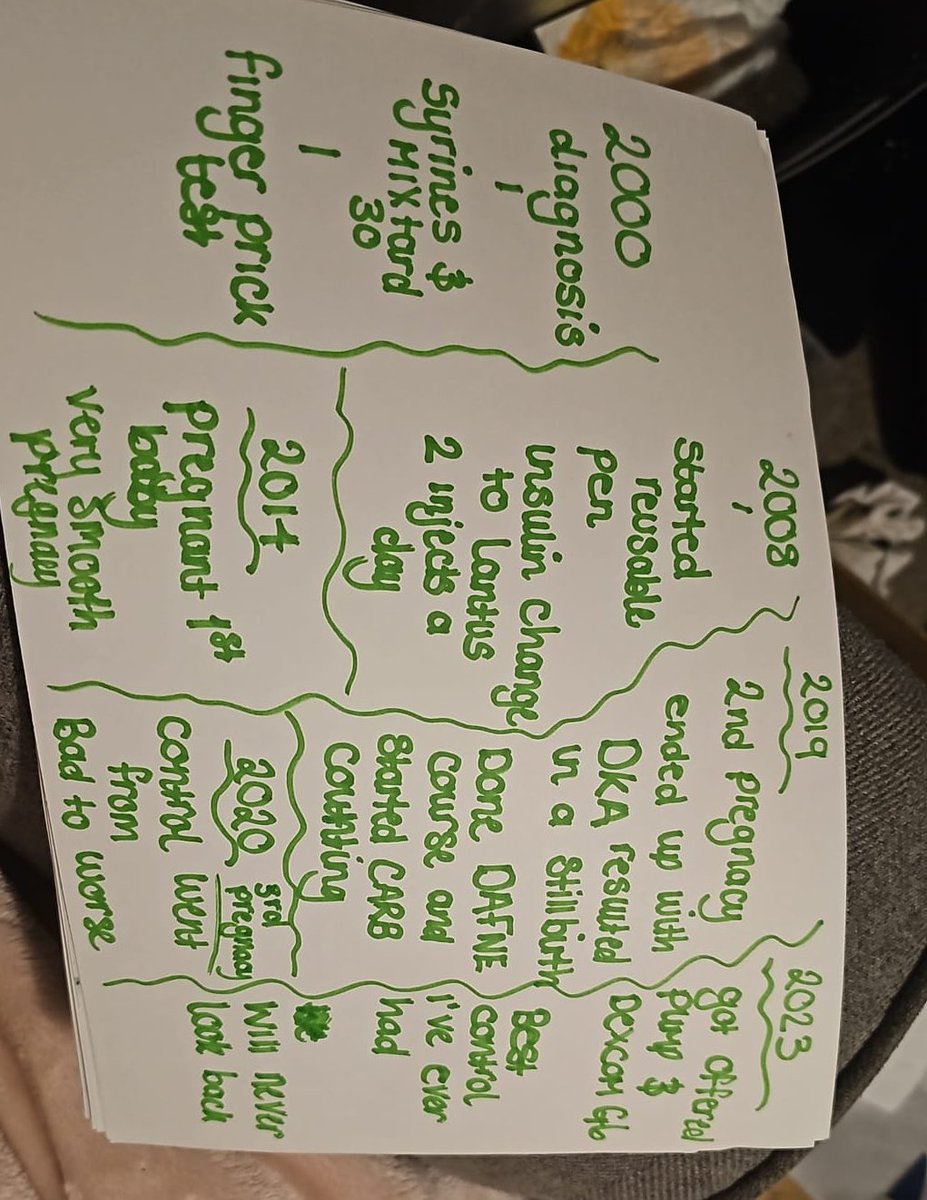 2000
diagnosis
Syrines &
MIXtard
30
finger prick
test
2008
Started
reusable
pen
insulin change
to Lantus
2 injects a
day
2014
Pregnant 1st
baby
very smooth
pregnacy
2019
2nd pregnacy
ended up with
DKA resulted
in a Stillbirth
Done DAFNE
Course and
Started CARB
Counting
2020 3rd
pregnacy
Control went
from
Bad to worse
2023
got offered
pump &
Dexcom G6
Best
control
I've ever
had
Will never
look back